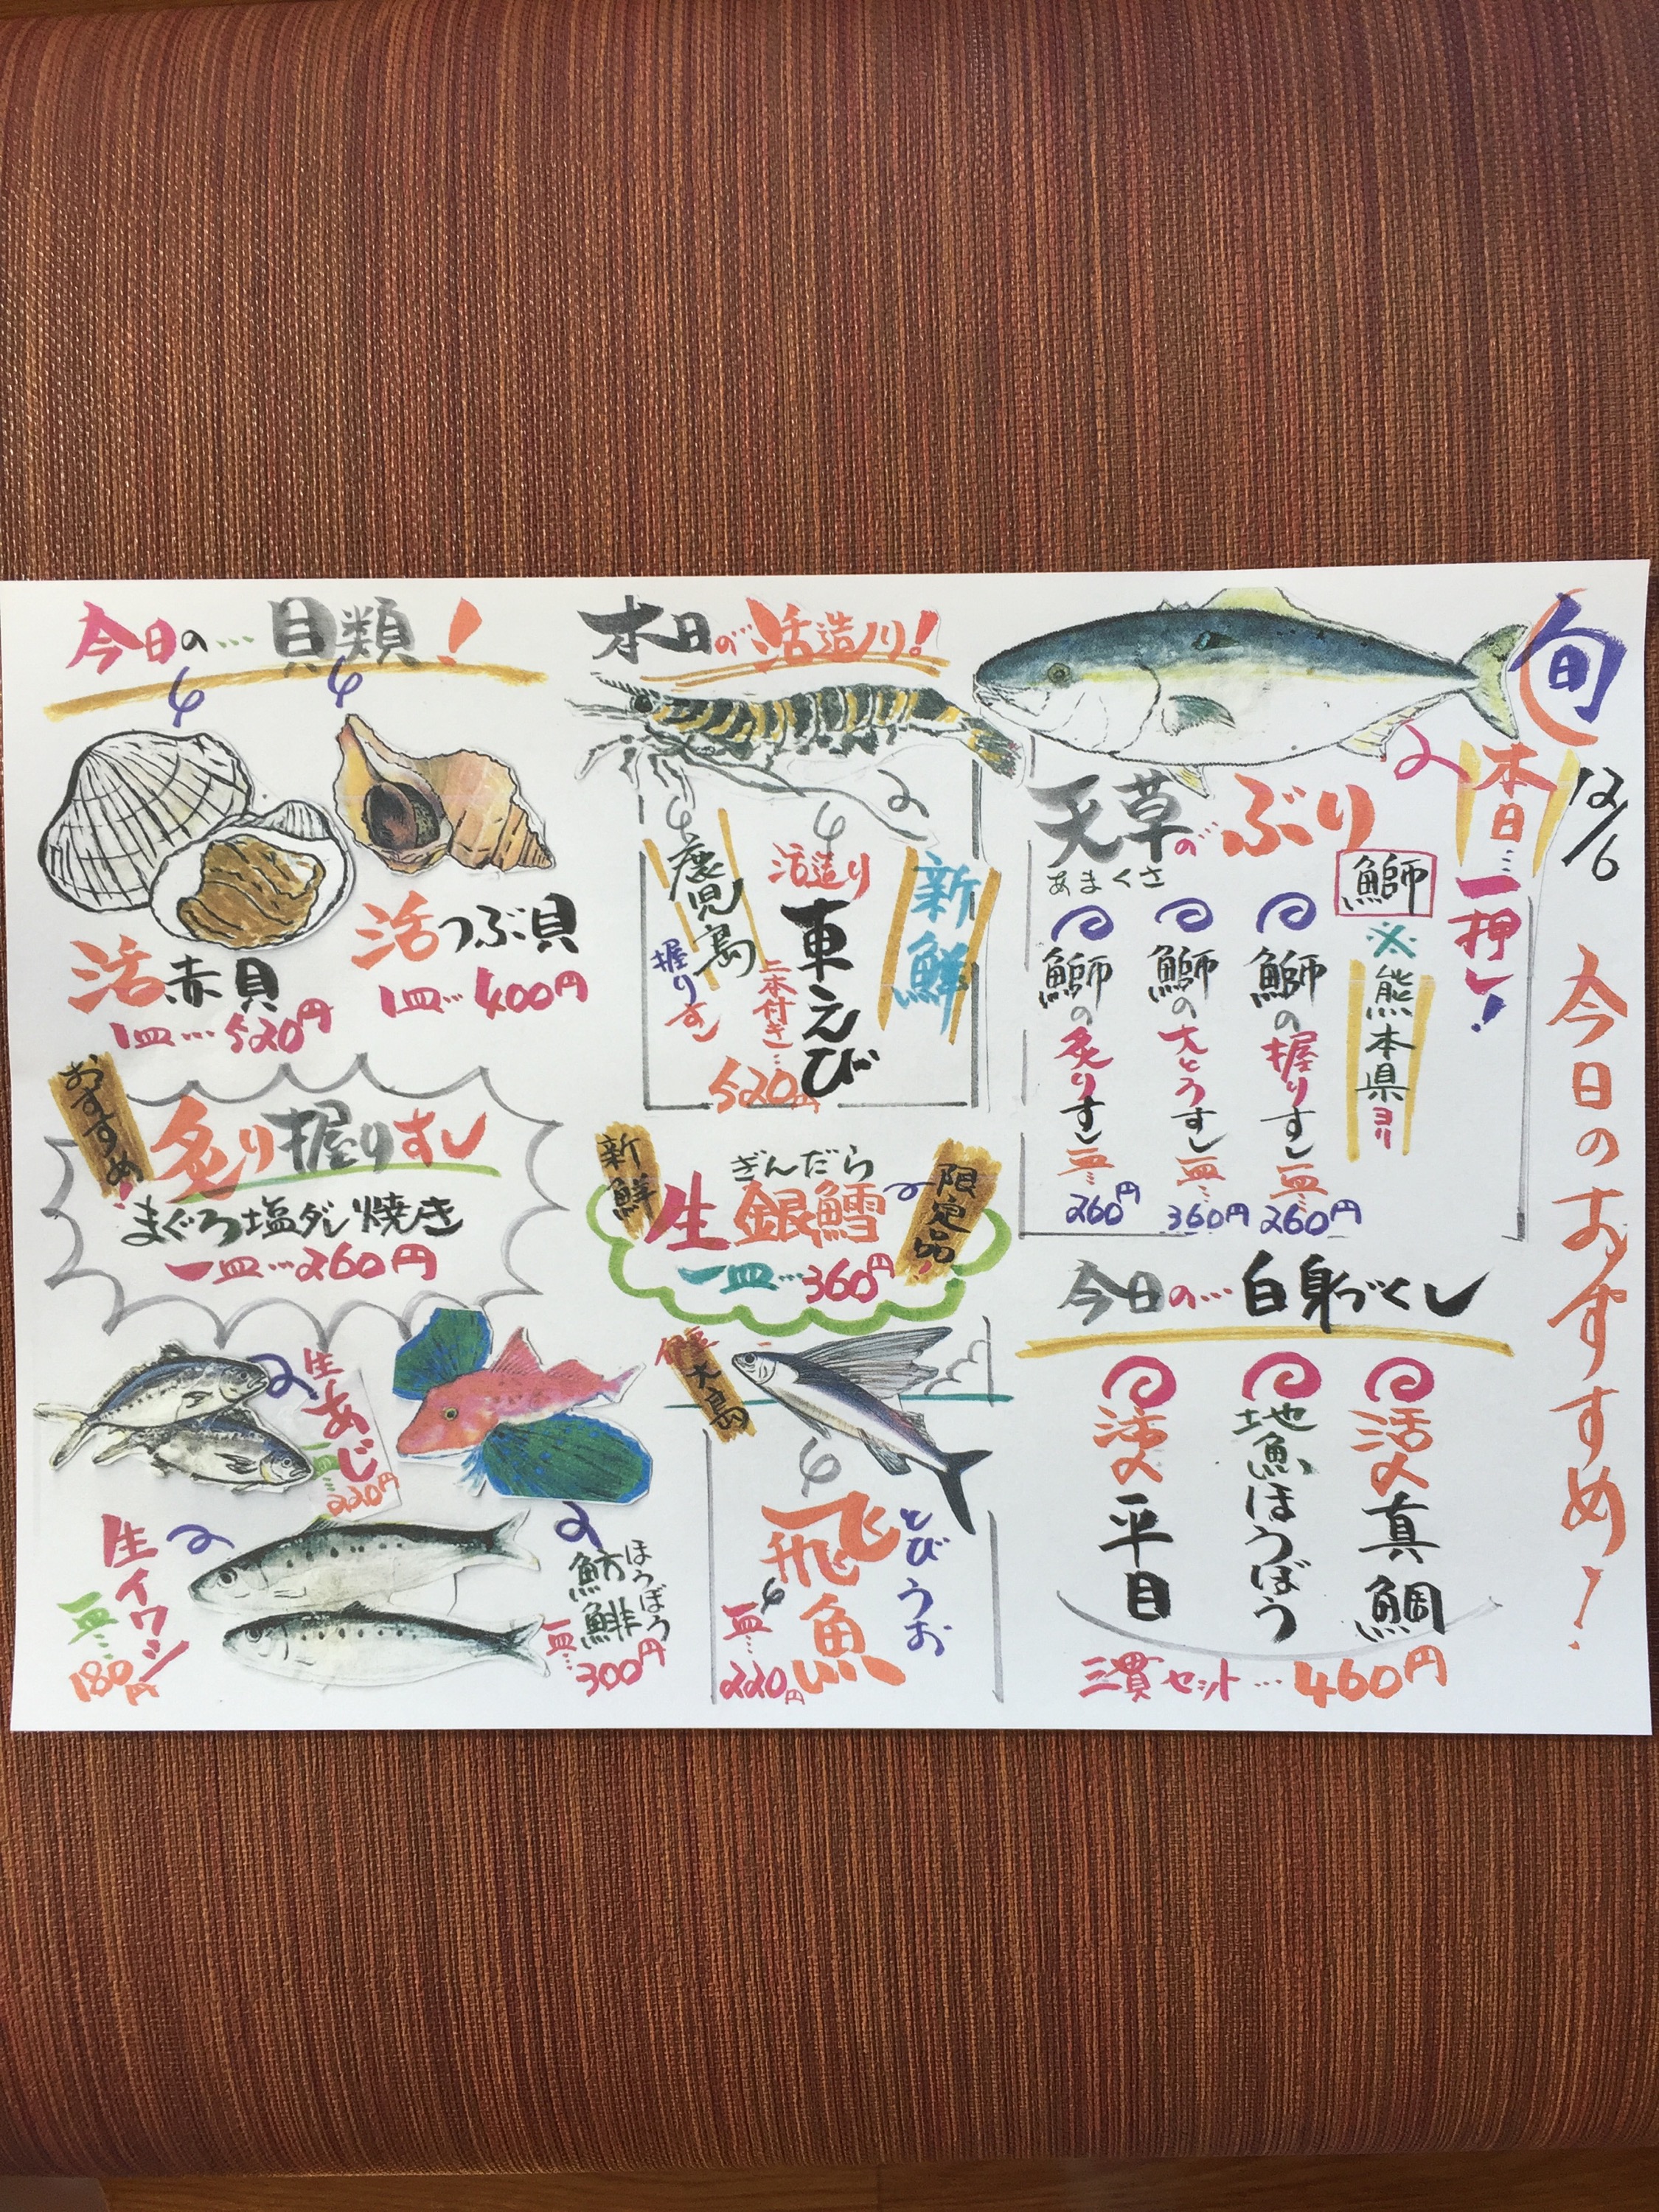 旬
12/6
今日のおすすめ!
本日…一押し!
天草の…ぶり
あまくさ
鰤
※熊本県ヨリ
鰤の握りすし一皿…260円
鰤の大とろすし一皿…360円
鰤の炙りすし一皿…260円
今日の…白身づくし
活〆真鯛
地魚ほうぼう
活〆平目
三貫セット…460円
本日の…活造り!
新鮮
活造り
車えび
二本付き…
520円
鹿児島
握りすし
新鮮
ぎんだら
生銀鱈
限定品!
一皿…360円
大島
とびうお
飛魚
一皿…220円
今日の…貝類!
活つぶ貝
1皿…400円
活赤貝
1皿…520円
おすすめ!
炙り握りすし
まぐろ塩ダレ焼き
一皿…260円
生あじ
一皿…220円
ほうぼう
魴鮄
一皿…300円
生イワシ
一皿…180円